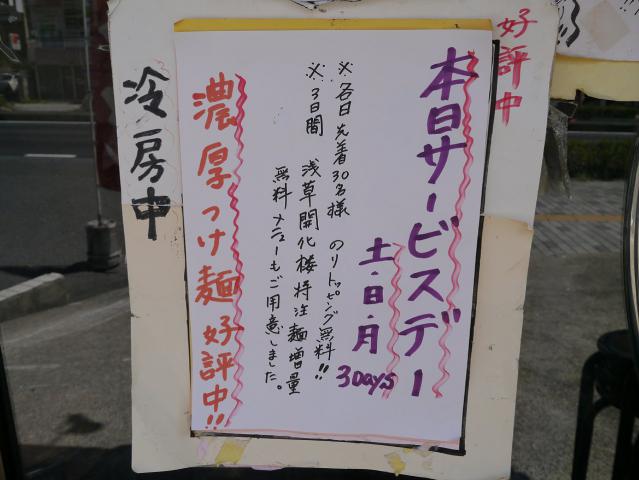 好評中
本日サービスデー
土・日・月
3Days
※各日 先着30名様 のりトッピング無料!!
※3日間 浅草開化楼特注麺増量
無料メニューもご用意しました。
濃厚つけ麺好評中!!
冷房中